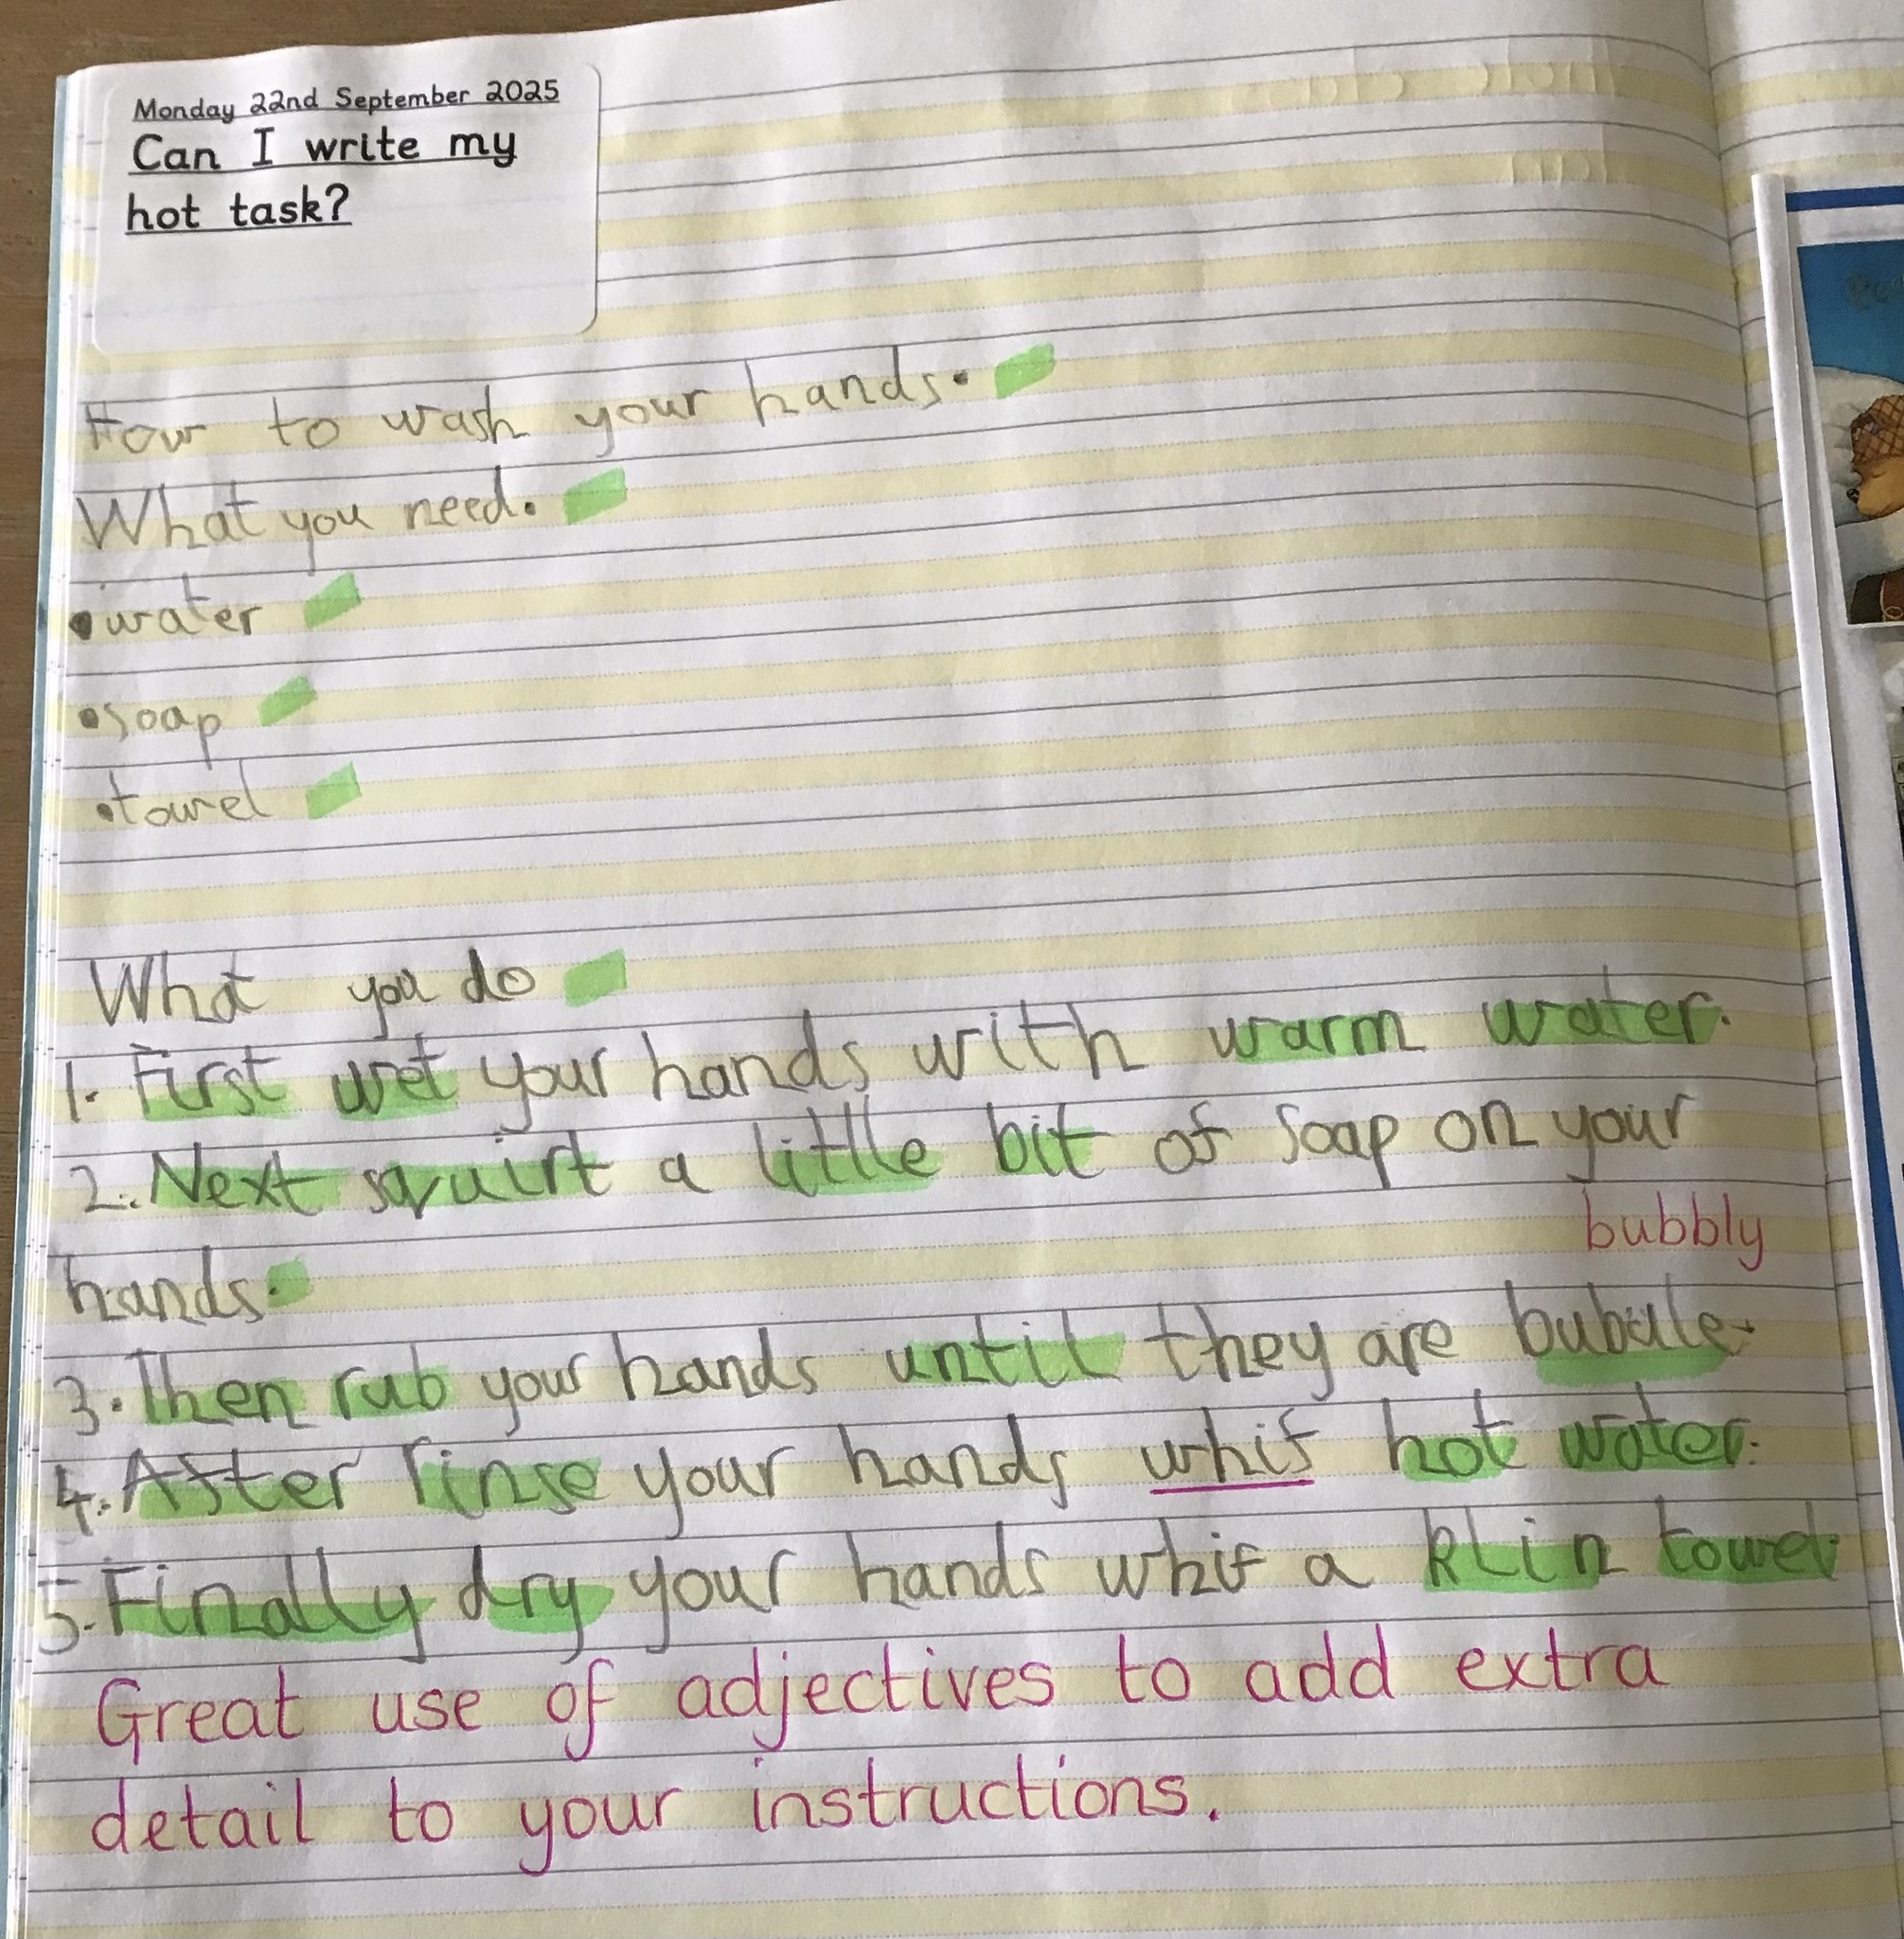 Monday 22nd September 2025
Can I write my
hot task?
How to wash your hands.
What you need.
•water
•soap
•towel
What you do
1. First wet your hands with warm water.
2. Next squirt a little bit of soap on your
bubbly
hands.
3. Then rub your hands until they are bubule.
4. After rinse your hands whif hot water.
5. Finally dry your hands whif a klin towel.
Great use of adjectives to add extra
detail to your instructions.